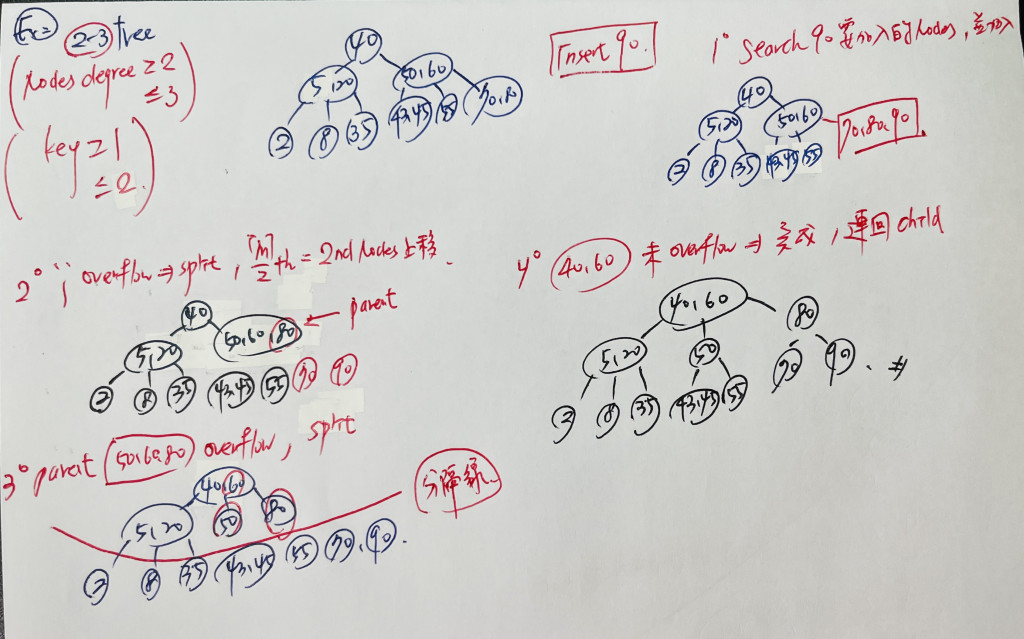 Ex= 2-3 tree
(Nodes degree ≥ 2
≤ 3)
(key ≥ 1
≤ 2.)
40
5,20 50,60
2 8 35 43,45 55 70,80
Insert 90.
1° Search 90 要加入的Nodes, 並加入
40
5,20 50,60
2 8 35 43,45 55 70,80,90.
2° ∵ overflow ⇒ split, ⌈M/2⌉th = 2nd Nodes 上移.
40
5,20 50,60,80 ← parent
2 8 35 43,45 55 70 90
3° parent 50,60,80 overflow, split
40,60
5,20 50 80
分隔線.
2 8 35 43,45 55 70, 90.
4° 40,60 未 overflow ⇒ 完成, 連回 child
40,60 80
5,20 50
2 8 35 43,45 55 70 90. #